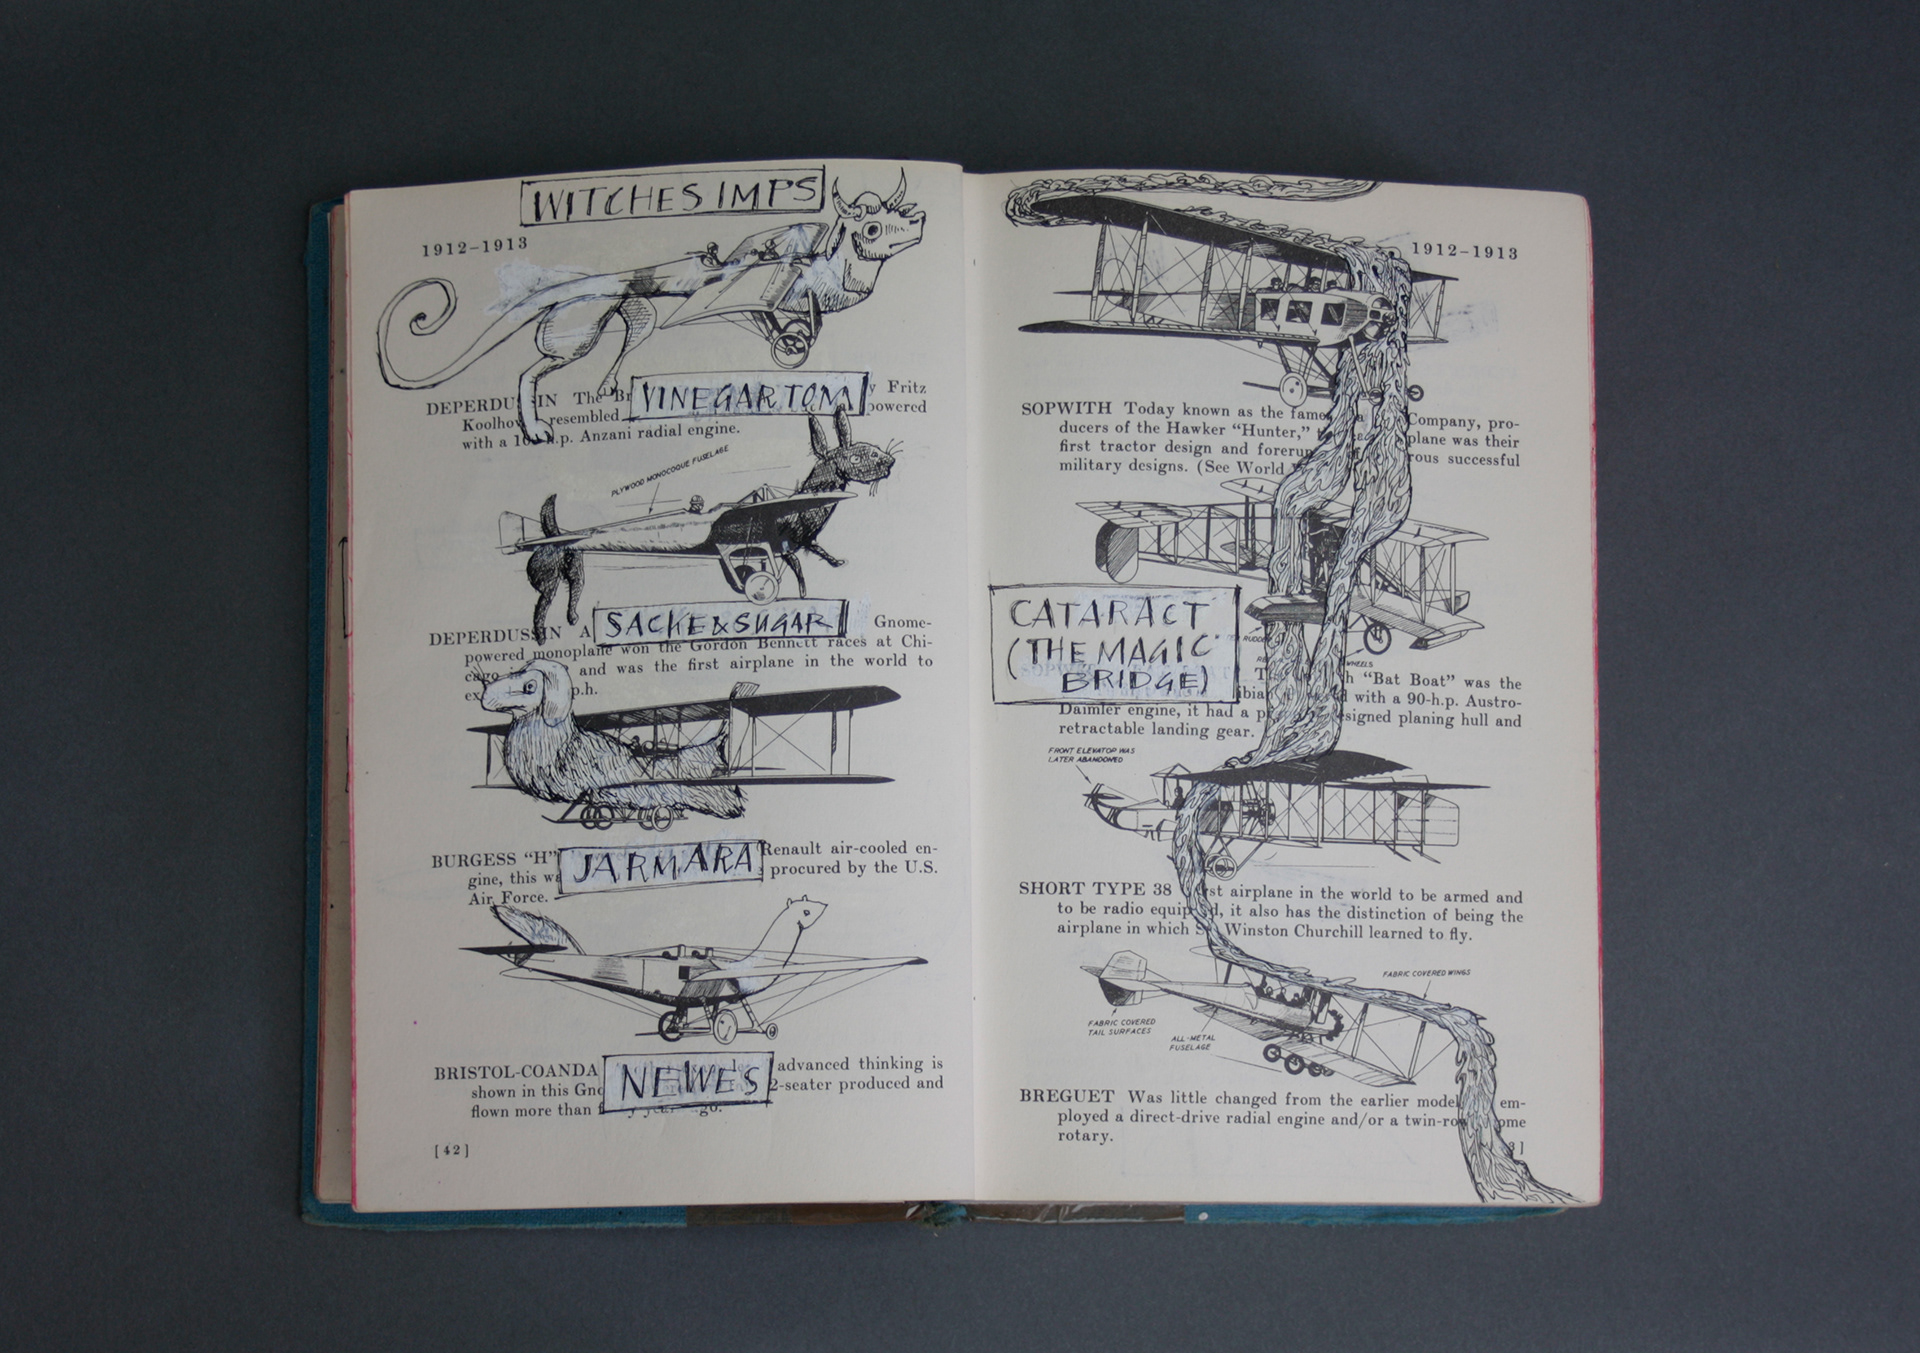 WITCHES IMPS
1912–1913
VINEGAR TOM
DEPERDUSSIN The Fritz
resembled powered
with a h.p. Anzani radial engine.
PLYWOOD MONOCOQUE FUSELAGE
SACKE & SUGAR
DEPERDUSSIN A Gnome-
powered monoplane won the Gordon Bennett races at Chi-
cago and was the first airplane in the world to
p.h.
JARMARA
BURGESS “H” Renault air-cooled en-
gine, this procured by the U.S.
Air Force.
NEWES
BRISTOL-COANDA advanced thinking is
shown in this 2-seater produced and
flown more than ago.
[42]
1912–1913
SOPWITH Today known as the Company, pro-
ducers of the Hawker “Hunter,” plane was their
first tractor design and successful
military designs. (See World
CATARACT
(THE MAGIC
BRIDGE)
WHEELS
“Bat Boat” was the
with a 90-h.p. Austro-
Daimler engine, it had a planing hull and
retractable landing gear.
FRONT ELEVATOR WAS
LATER ABANDONED
SHORT TYPE 38 airplane in the world to be armed and
to be radio it also has the distinction of being the
airplane in which Winston Churchill learned to fly.
FABRIC COVERED WINGS
FABRIC COVERED
TAIL SURFACES
ALL-METAL
FUSELAGE
BREGUET Was little changed from the earlier model em-
ployed a direct-drive radial engine and/or a
rotary.
3]